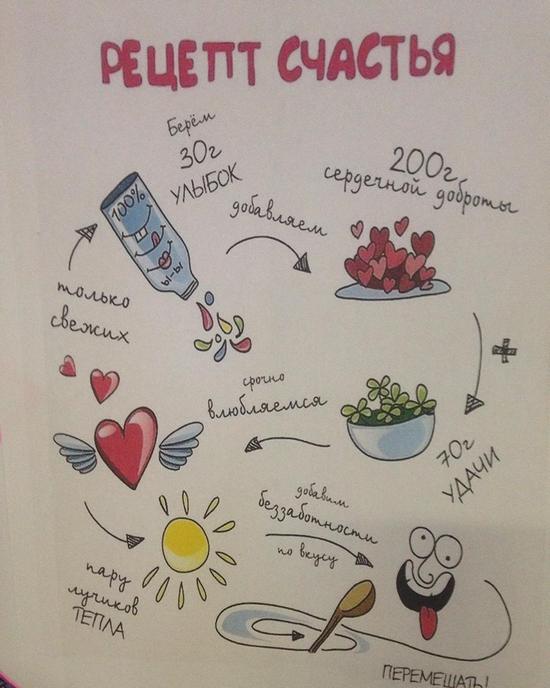 РЕЦЕПТ СЧАСТЬЯ
Берём
30г
УЛЫБОК
100%
ы-ы
только
свежих
добавляем
200г
сердечной доброты
+
70г
УДАЧИ
срочно
влюбляемся
пару
лучиков
ТЕПЛА
добавим
беззаботности
по вкусу
ПЕРЕМЕШАТЬ!